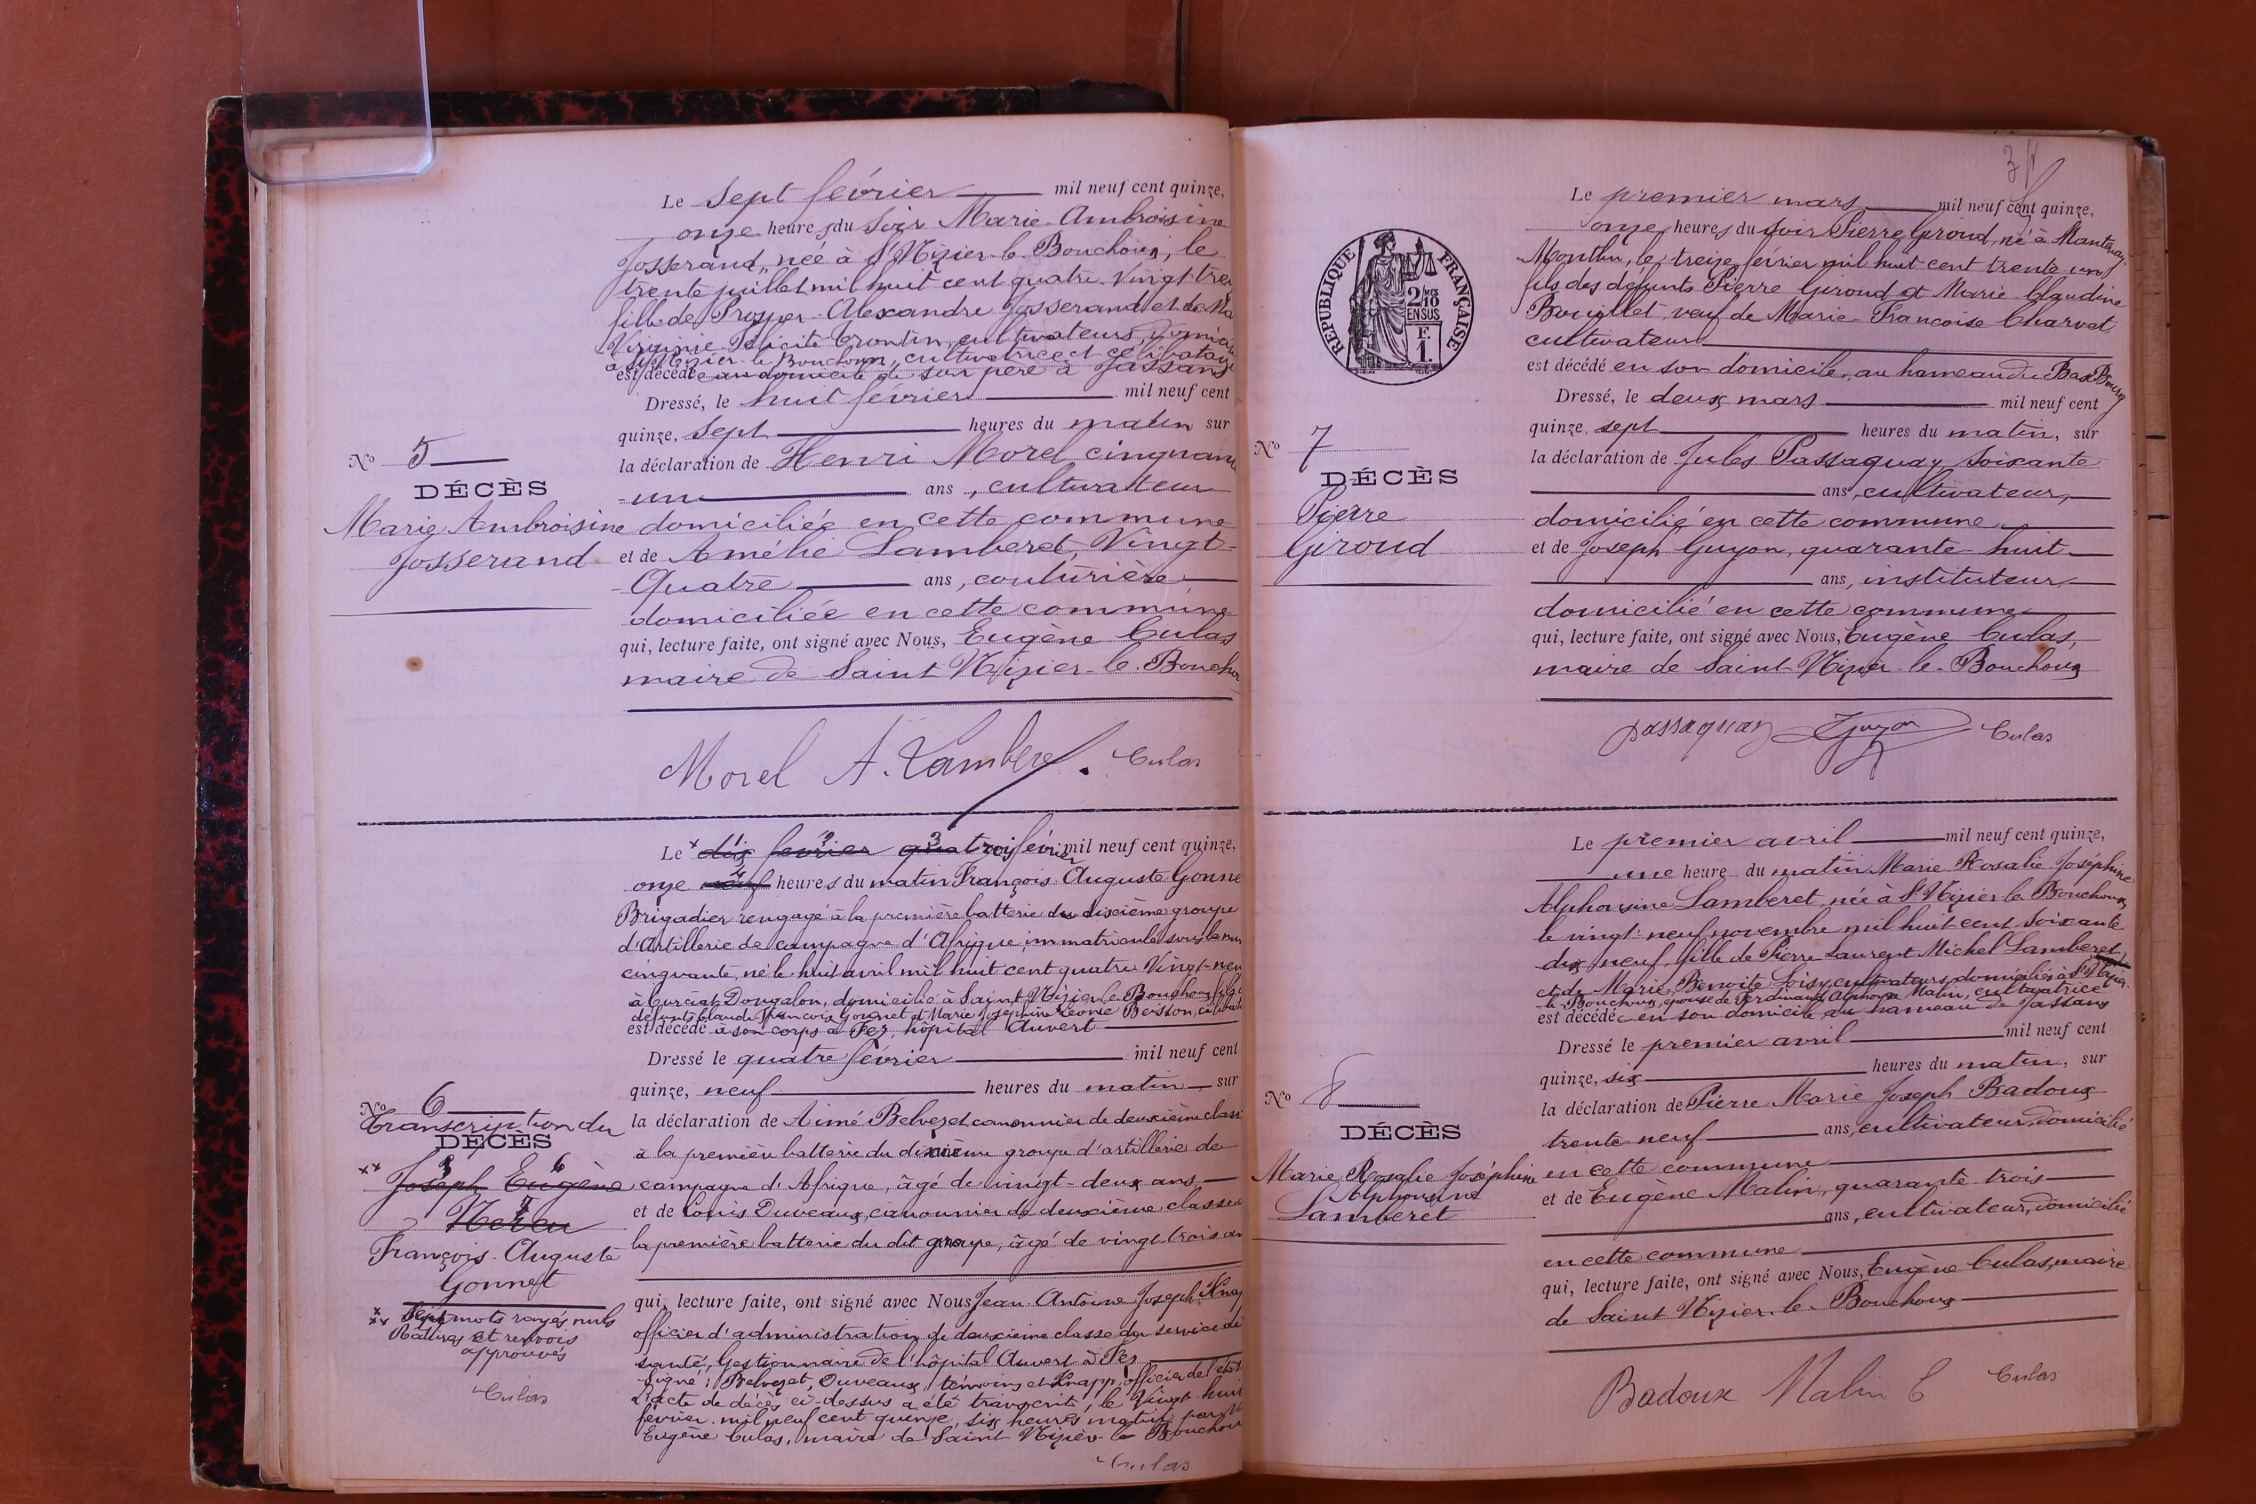 Le sept février mil neuf cent quinze,
onze heures du soir Marie-Ambroisine
Josserand, née à St Nizier-le-Bouchoux, le
trente juillet mil huit cent quatre-vingt-
fille de Prosper-Alexandre Josserand et de
Virginie-Félicité Trontin, cultivateurs,
à St Nizier-le-Bouchoux, cultivatrice et célibataire
est décédée au domicile de son père à Jassans
Dressé, le huit février mil neuf cent
quinze, sept heures du matin sur
la déclaration de Henri Morel cinquante
-un ans, cultivateur
domiciliée en cette commune
et de Amélie Lamberet, Vingt-
Quatre ans, couturière
domiciliée en cette commune
qui, lecture faite, ont signé avec Nous, Eugène Culas
maire de Saint Nizier-le-Bouchoux
No 5
DÉCÈS
Marie Ambroisine
Josserand
Morel A. Lamberet. Culas
Le x dix février quatre trois février mil neuf cent quinze,
onze neuf heures du matin François-Auguste Gonnet
Brigadier rengagé à la première batterie du dixième groupe
d'Artillerie de campagne d'Afrique, immatriculé sous le
cinquante, né le huit avril mil huit cent quatre Vingt-neuf
à Curciat-Dongalon, domicilié à Saint Nizier-le-Bouchoux, fils
défunts Claude François Gonnet et Marie Joséphine Léonie Besson,
est décédé à son corps à Fez, hôpital Auvert
Dressé le quatre février mil neuf cent
quinze, neuf heures du matin sur
la déclaration de Aimé Belvezet canonnier de deuxième classe
à la première batterie du dixième groupe d'artillerie de
campagne d'Afrique, âgé de vingt-deux ans,
et de Louis Duveaux, canonnier de deuxième classe
la première batterie du dit groupe, âgé de vingt trois ans
qui, lecture faite, ont signé avec Nous Jean-Antoine-Joseph Knapp
officier d'administration de deuxième classe du service de
santé, Gestionnaire de l'hôpital Auvert à Fez
Signé: Belvezet, Duveaux, témoins et Knapp officier de l'état
L'acte de décès ci-dessus a été transcrit, le Vingt-huit
février mil neuf cent quinze, six heures matin par
Eugène Culas, maire de Saint Nizier-le-Bouchoux
Culas
No 6
Transcription du
DÉCÈS
xx Joseph Eugène
François-Auguste
Gonnet
x xx Sept mots rayés nuls
Ratures et renvois
approuvés
Culas
Le premier mars mil neuf cent quinze,
onze heures du soir Pierre Giroud, né à Mantenay-
Montlin, le treize février mil huit cent trente un
fils des défunts Pierre Giroud et Marie Claudine
Bouillet, veuf de Marie-Françoise Charvet
cultivateur
est décédé en son domicile, au hameau du Bas Bourg
Dressé, le deux mars mil neuf cent
quinze, sept heures du matin, sur
la déclaration de Jules Passaquay, soixante
ans, cultivateur,
domicilié en cette commune
et de Joseph Guyon, quarante-huit
ans, instituteur
domicilié en cette commune
qui, lecture faite, ont signé avec Nous, Eugène Culas,
maire de Saint-Nizier-le-Bouchoux
RÉPUBLIQUE FRANÇAISE
2/10
EN SUS
F.
1.
No 7
DÉCÈS
Pierre
Giroud
passaquay JGuyon Culas
Le premier avril mil neuf cent quinze,
une heure du matin Marie Rosalie Joséphine
Alphonsine Lamberet, née à St Nizier le Bouchoux
le vingt-neuf novembre mil huit cent soixante
dix neuf, fille de Pierre Laurent Michel Lamberet
et de Marie, Benoite Loisy, cultivateurs, domiciliés à St Nizier-
le-Bouchoux, épouse de Ferdinand Alphonse Malin, cultivatrice
est décédée en son domicile au hameau de Jassans
Dressé le premier avril mil neuf cent
quinze, six heures du matin, sur
la déclaration de Pierre Marie Joseph Badoux
trente neuf ans, cultivateur, domicilié
en cette commune
et de Eugène Malin, quarante-trois
ans, cultivateur, domicilié
en cette commune
qui, lecture faite, ont signé avec Nous, Eugène Culas, maire
de Saint-Nizier-le-Bouchoux
No 8
DÉCÈS
Marie Rosalie Joséphine
Alphonsine
Lamberet
Badoux Malin E Culas